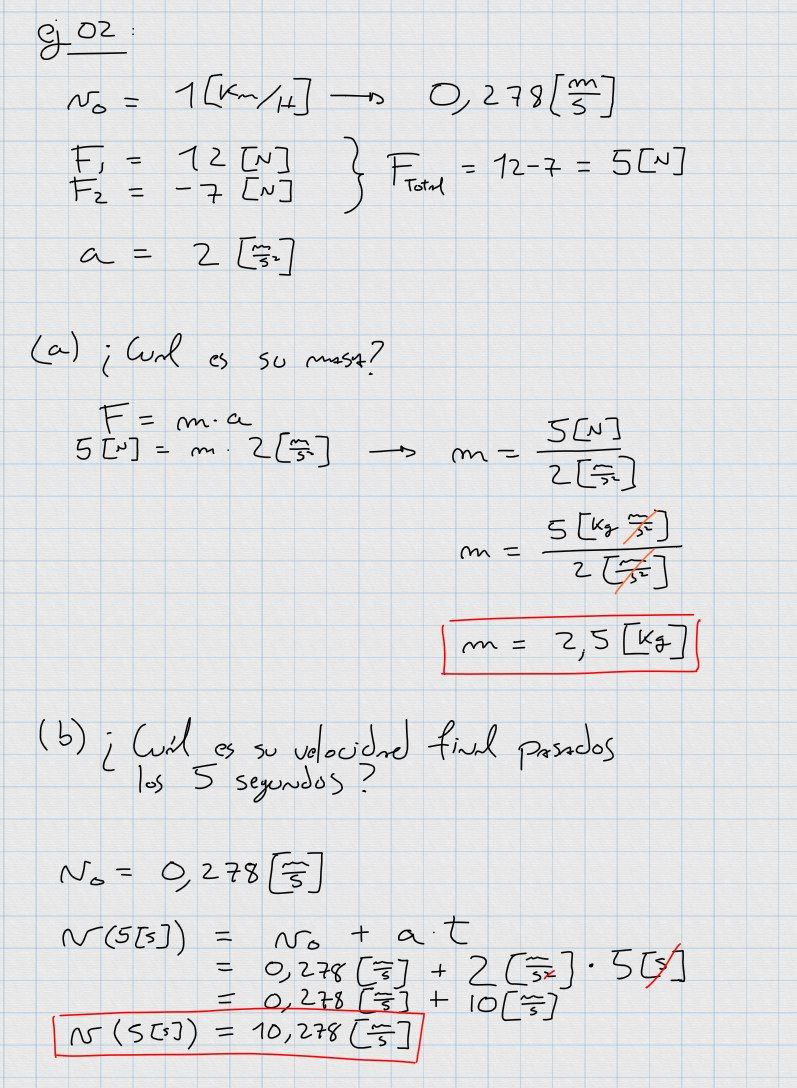 Ej 02:
v₀ = 1 [Km/H] → 0,278 [m/s]
F₁ = 12 [N]
F₂ = -7 [N] } F_Total = 12-7 = 5 [N]
a = 2 [m/s²]
(a) ¿Cuál es su masa?
F = m·a
5 [N] = m · 2 [m/s²] → m = 5 [N] / 2 [m/s²]
m = 5 [Kg m/s²] / 2 [m/s²]
m = 2,5 [Kg]
(b) ¿Cuál es su velocidad final pasados
los 5 segundos?
v₀ = 0,278 [m/s]
v (5[s]) = v₀ + a·t
= 0,278 [m/s] + 2 [m/s²] · 5 [s]
= 0,278 [m/s] + 10 [m/s]
v (5[s]) = 10,278 [m/s]